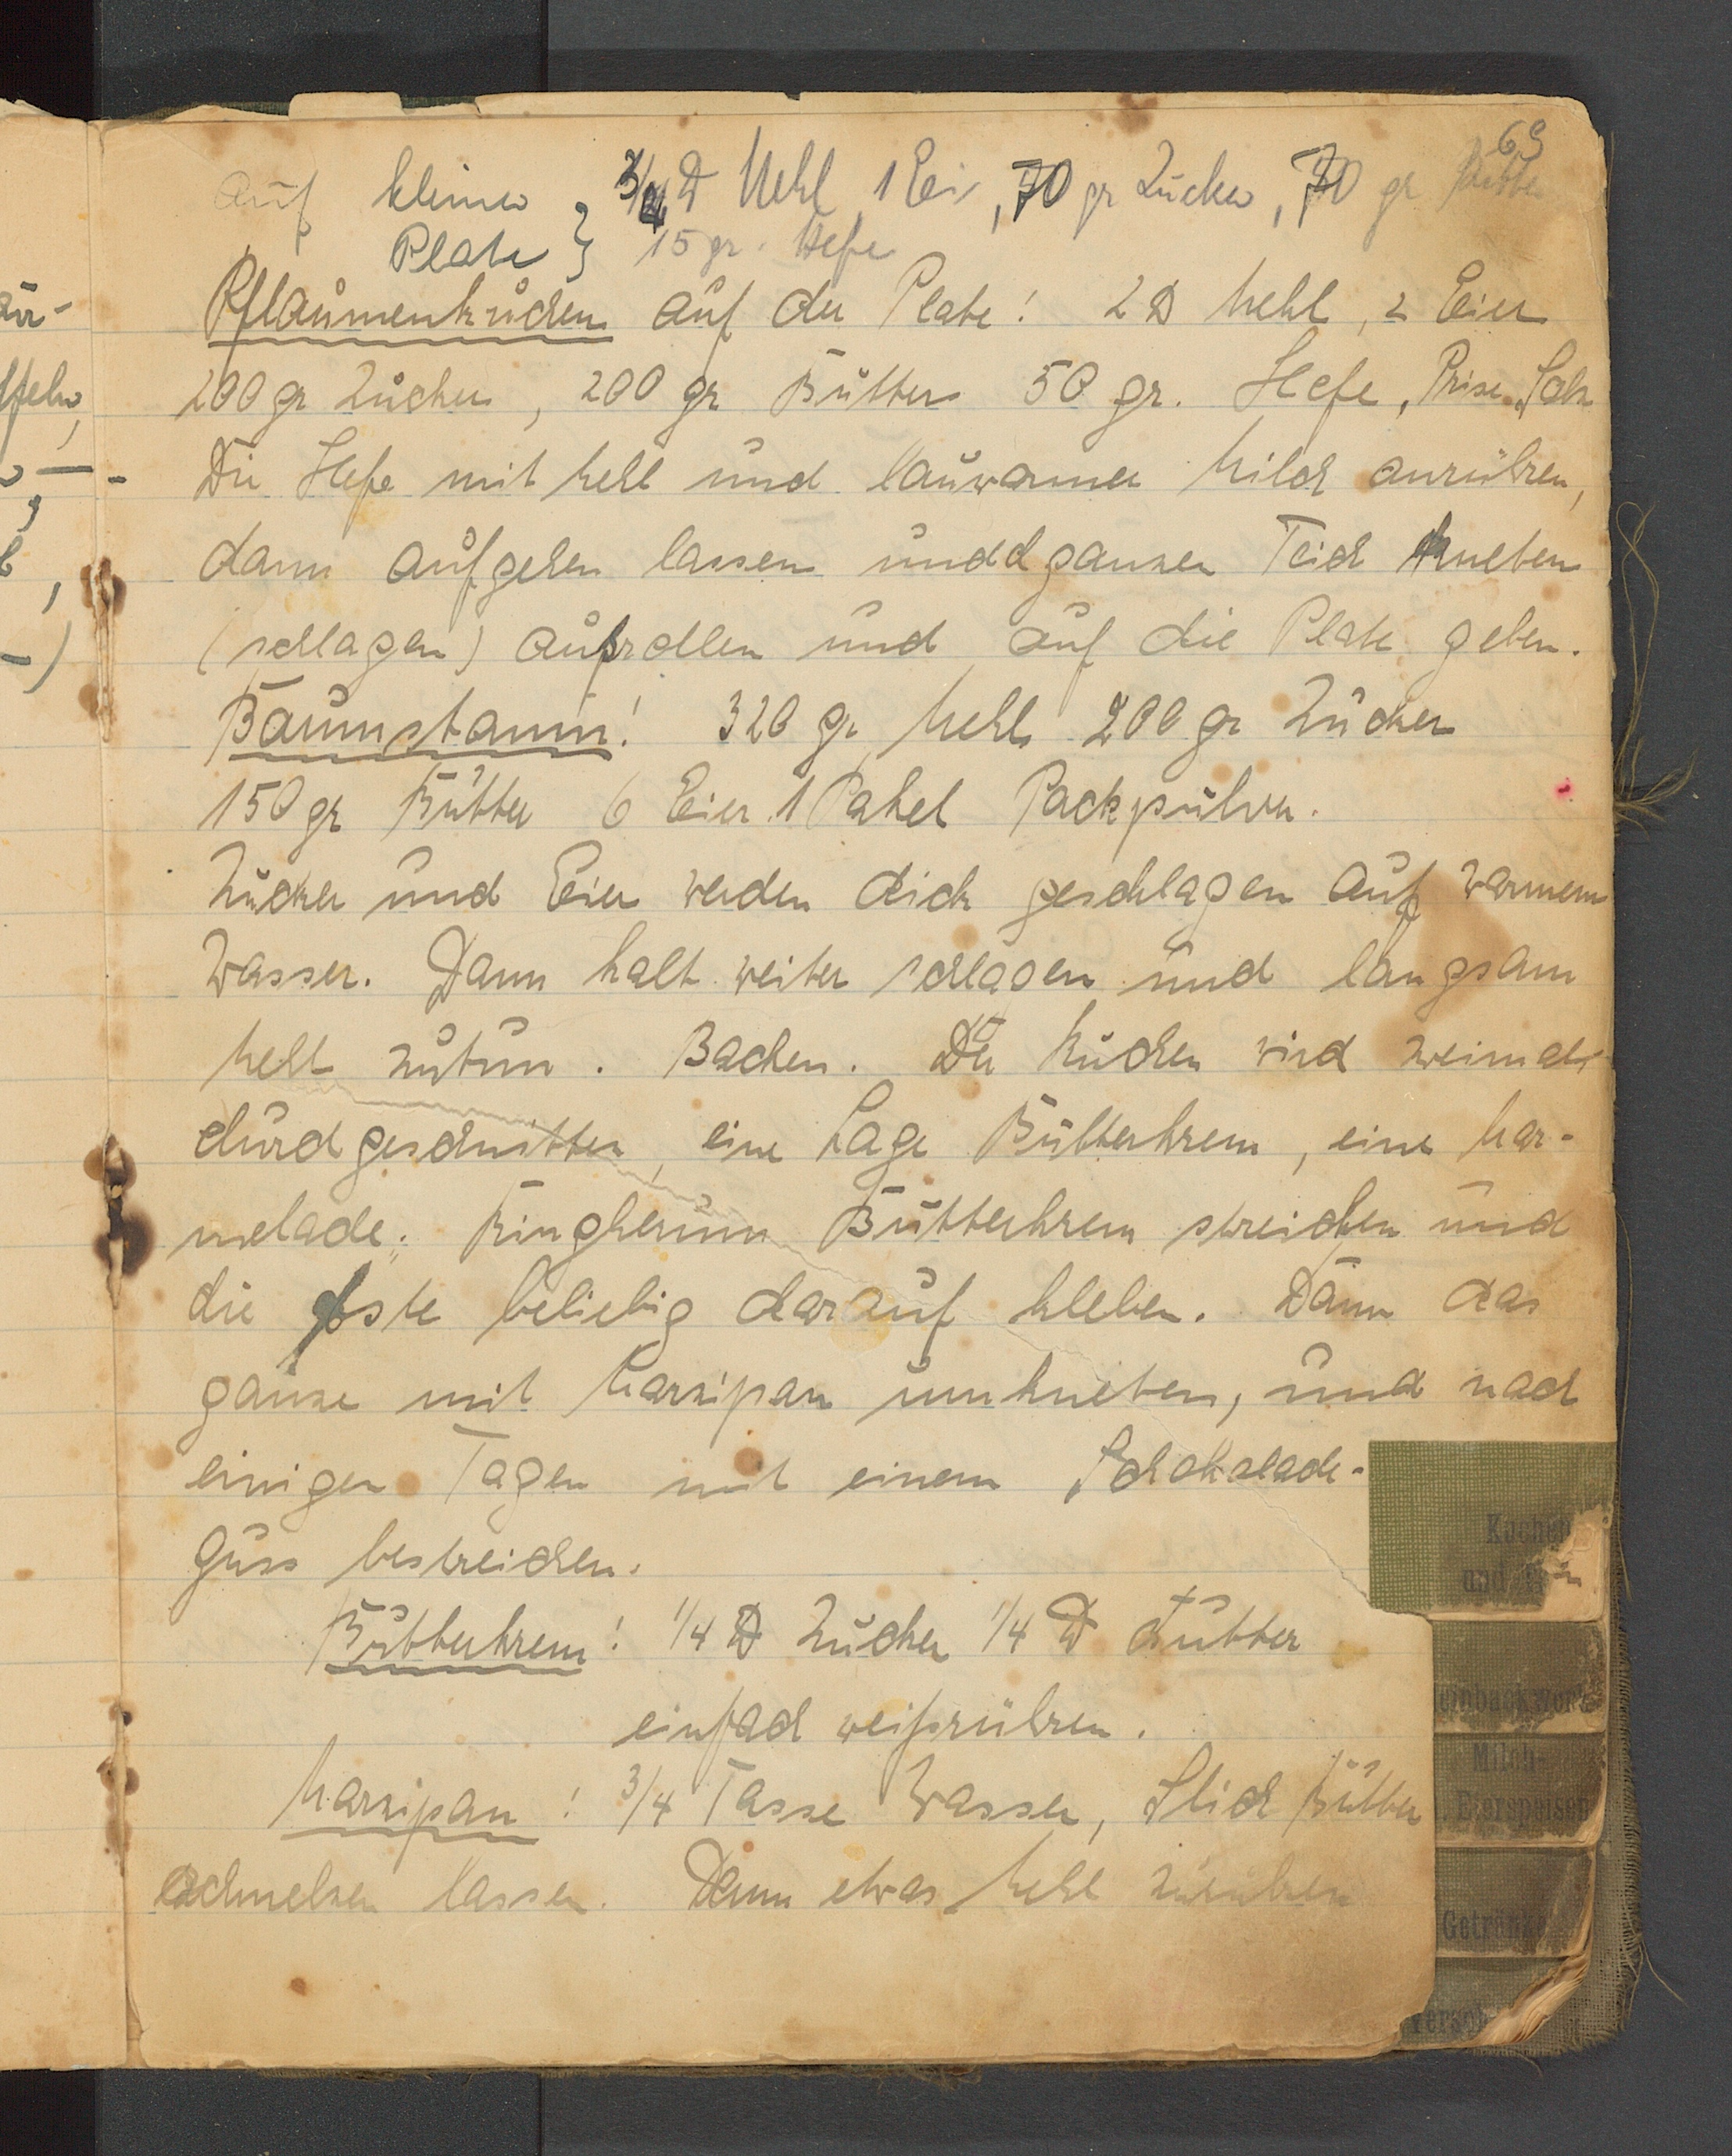 69
auf kleiner 3/4 ℔ Mehl, 1 Ei, 70 gr Zucker, 70 gr Butter
Plate } 15 gr. Hefe
Pflaumenkuchen auf der Plate! 2 ℔ Mehl, 2 Eier
200 gr Zucker, 200 gr Butter 50 gr. Hefe, Prise Salz
Die Hefe mit Mehl und lauwarmer Milch anrühren,
dann aufgehen lassen und d ganzen Teich kneten
(schlagen) aufrollen und auf die Plate geben.
Baumstamm! 320 gr Mehl 200 gr Zucker
150 gr Butter 6 Eier 1 Paket Packpulver.
Zucker und Eier werden dick geschlagen auf warmem
Wasser. Dann kalt weiter schlagen und langsam
Mehl zutun. Backen. Der Kuchen wird zweimal
durchgeschnitten, eine Lage Butterkrem, eine Mar-
melade. Ringherum Butterkrem streichen und
die Äste beliebig darauf kleben. Dann das
ganze mit Marzipan umkneten, und nach
einigen Tagen mit einem Schokolade-
guss bestreichen.
Butterkrem! 1/4 ℔ Zucker 1/4 ℔ Butter
einfach weißrühren.
Marzipan! 3/4 Tasse Wasser, Stich Butter
schmelzen lassen. Dann etwas Mehl zurühren
Kuchen
und
einbackwerk
Milch-
Eierspeisen
Getränke